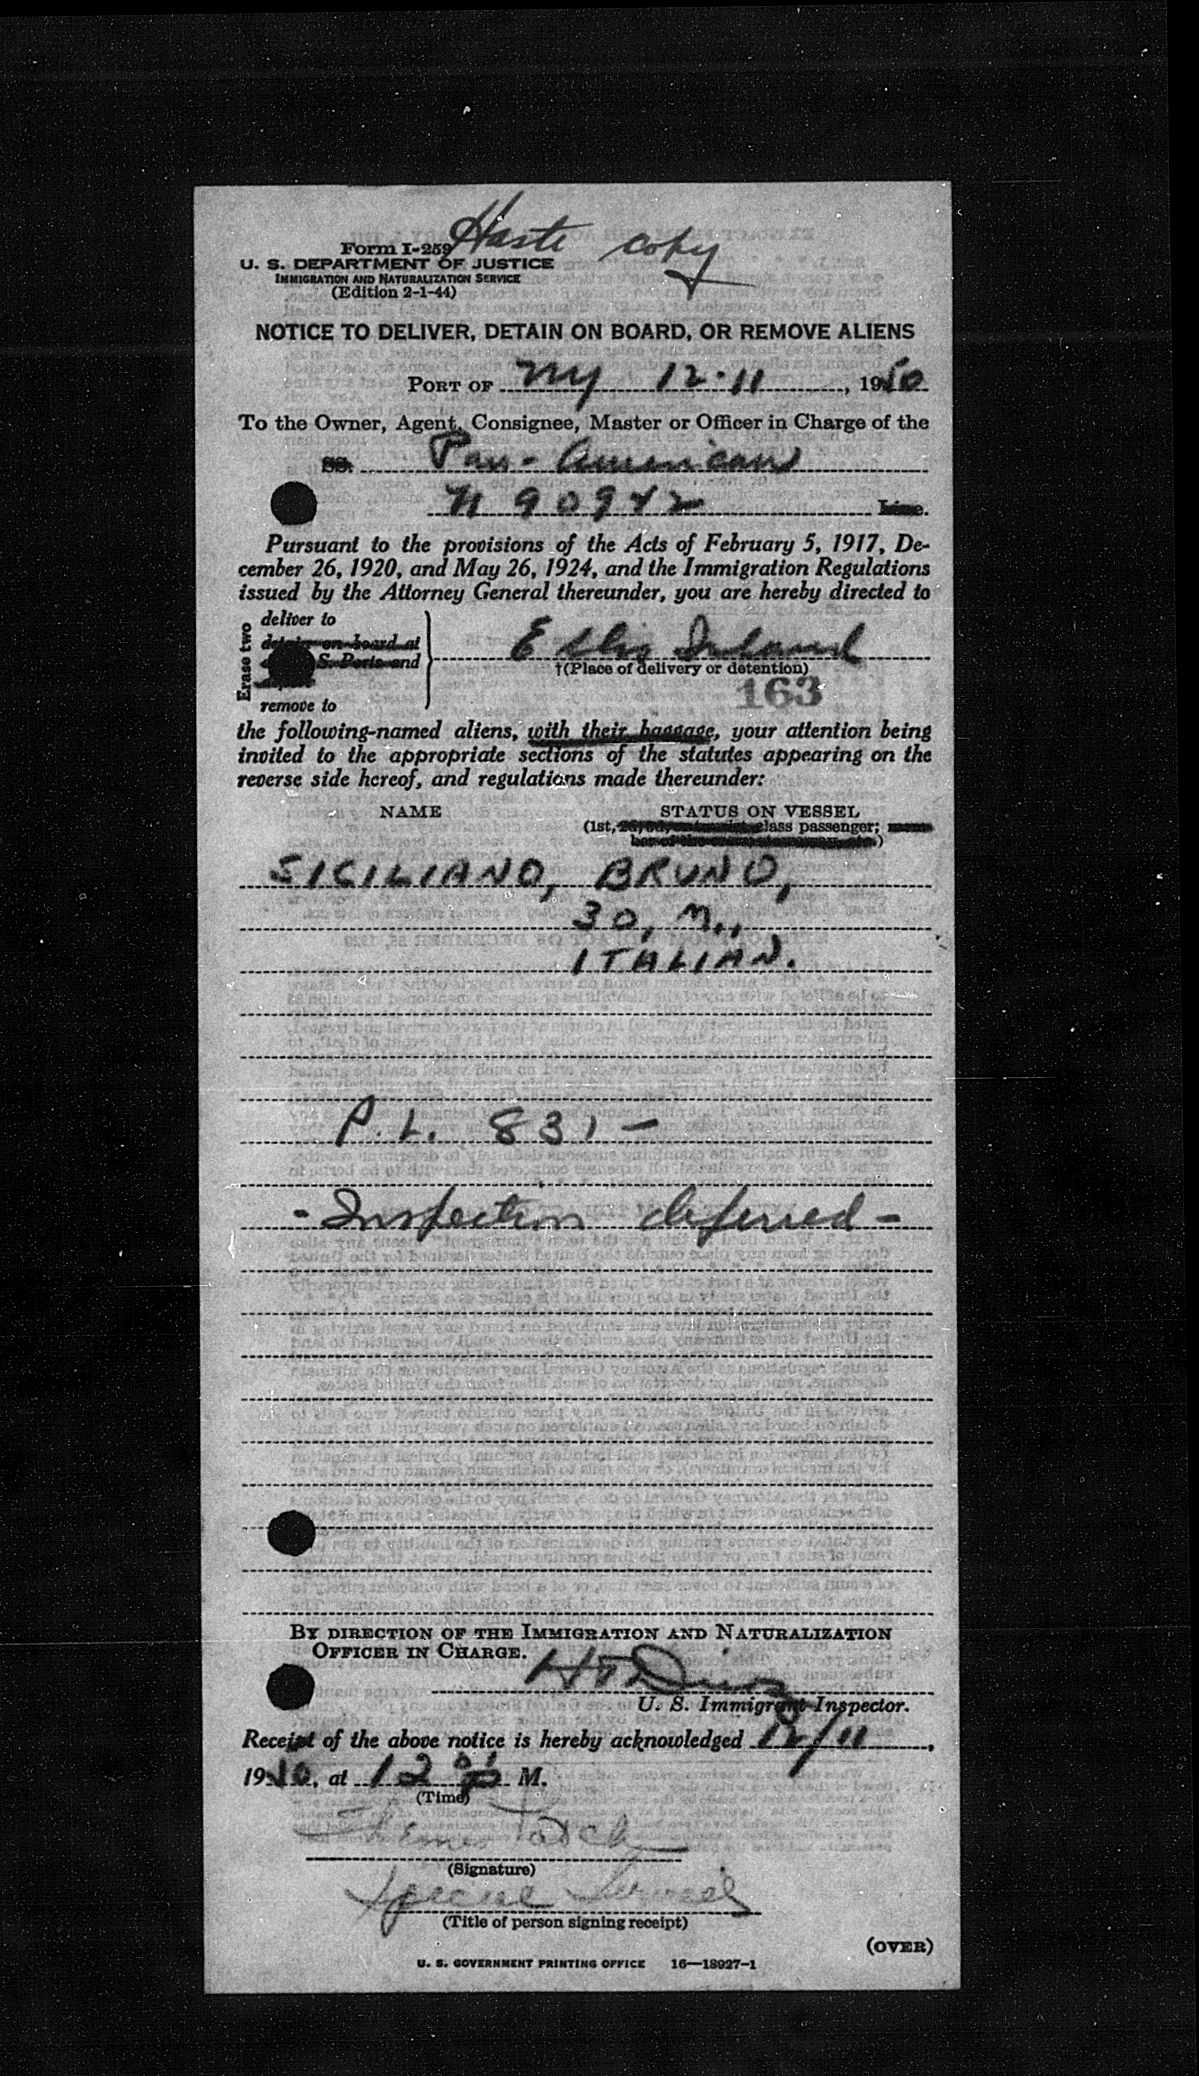 Haste copy
Form I-259
U. S. DEPARTMENT OF JUSTICE
IMMIGRATION AND NATURALIZATION SERVICE
(Edition 2-1-44)
NOTICE TO DELIVER, DETAIN ON BOARD, OR REMOVE ALIENS
PORT OF NY 12-11, 1950
To the Owner, Agent, Consignee, Master or Officer in Charge of the
SS. Pan-American
N 90942 Line.
Pursuant to the provisions of the Acts of February 5, 1917, De-
cember 26, 1920, and May 26, 1924, and the Immigration Regulations
issued by the Attorney General thereunder, you are hereby directed to
Erase two
deliver to
detain on board at
S. Ports and
remove to
Ellis Island
†(Place of delivery or detention)
163
the following-named aliens, with their baggage, your attention being
invited to the appropriate sections of the statutes appearing on the
reverse side hereof, and regulations made thereunder:
NAME STATUS ON VESSEL
(1st, class passenger;
SICILIANO, BRUNO,
30, M.,
ITALIAN.
P.L. 831 —
- Inspection deferred -
BY DIRECTION OF THE IMMIGRATION AND NATURALIZATION
OFFICER IN CHARGE.
U. S. Immigrant Inspector.
Receipt of the above notice is hereby acknowledged 12/11,
1950, at 12 M.
(Time)
(Signature)
Special Services
(Title of person signing receipt)
(OVER)
U. S. GOVERNMENT PRINTING OFFICE 16—18927-1